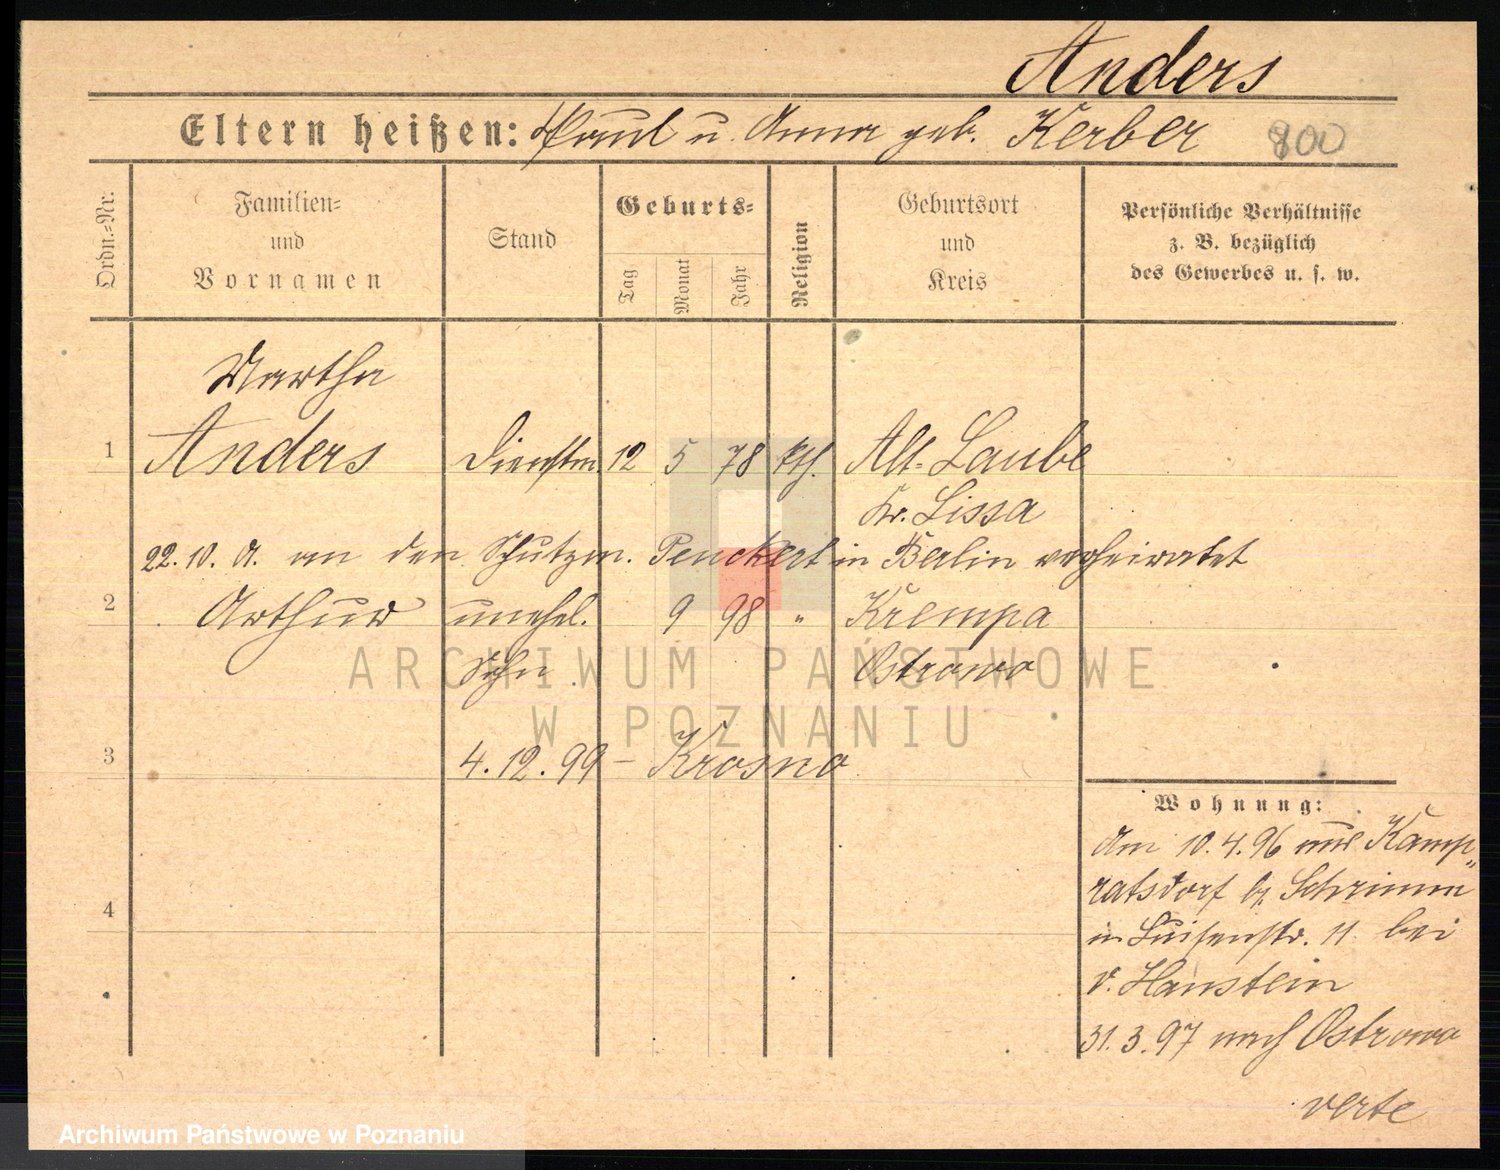 Anders
Eltern heißen: Paul u. Anna geb. Kerber
800
Ordn.-Nr.
Familien-
und
Vornamen
Stand
Geburts-
Tag
Monat
Jahr
Religion
Geburtsort
und
Kreis
Persönliche Verhältnisse
z. B. bezüglich
des Gewerbes u. s. w.
Martha
1 Anders Dienstm. 12 5 78 kth. Alt-Laube
Kr. Lissa
22. 10. 01. an den Schutzm. Penckert in Berlin verheiratet
2 Arthur unehel. 9 98 " Krempa
Sohn Ostrowo
ARCHIWUM PAŃSTWOWE
W POZNANIU
3 4. 12. 99 - Krosno
4
Wohnung:
Am 10. 4. 96 aus Kamp-
ratsdorf b. Schrimm
in Luisenstr. 11 bei
v. Hanstein
31. 3. 97 nach Ostrowo
verte
Archiwum Państwowe w Poznaniu